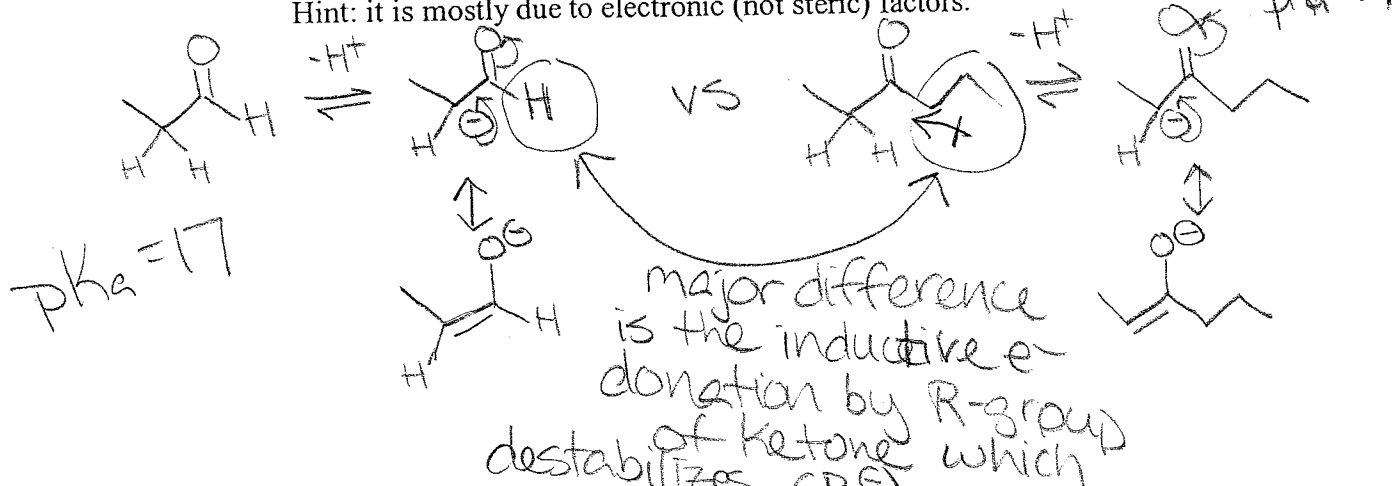 Hint: it is mostly due to electronic (not steric) factors.
-H⁺
-H⁺
O
H
H
H
O
H
H
⊖
vs
O
H
H
O
H
⊖
pKa = 17
O⊖
H
H
O⊖
major difference
is the inductive e-
donation by R-group
of ketone which
destabilizes